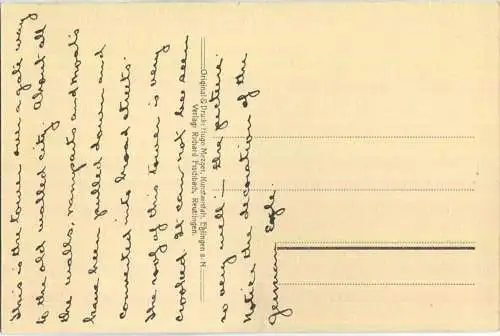 This is the tower over a gate way
to the old walled city. About all
the walls, ramparts and moats
have been pulled down and
converted into broad streets.
The roof of this tower is very
crooked. It can not be seen
so very well — the picture.
Notice the decoration of the
German Eagle.
Original & Druck: Hugo Mezger, Kunstanstalt, Eßlingen a. N.
Verlag: Richard Fischbach, Reutlingen.